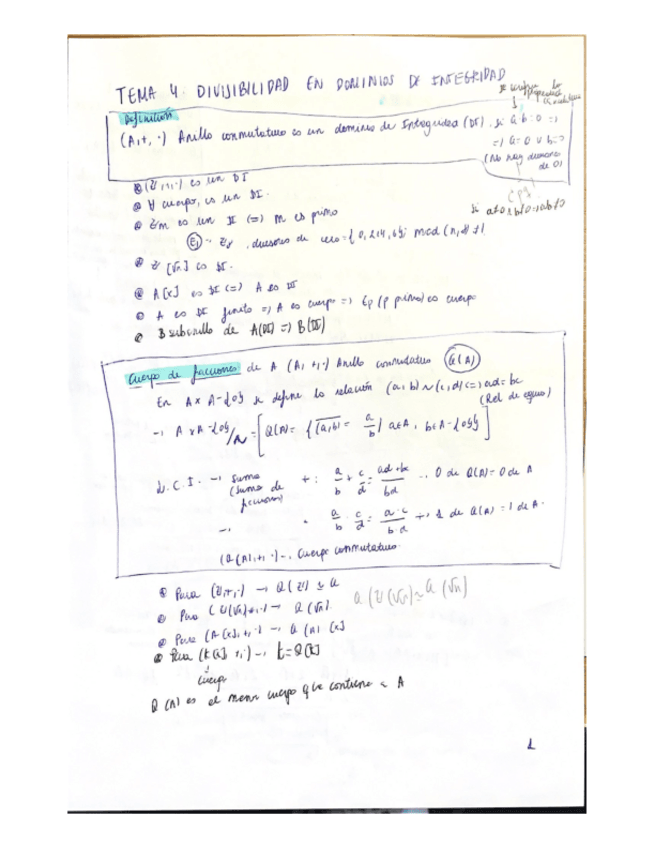 TEMA 4. DIVISIBILIDAD EN DOMINIOS DE INTEGRIDAD
Definición
se verifica la propiedad
(A,+,·) Anillo conmutativo es un dominio de Integridad (DI) si a·b=0 =>
=> a=0 v b=0
(No hay divisores de 0)
(Z,+,·) es un DI
∀ cuerpo, es un DI.
si a≠0 ∧ b≠0 => ab≠0
Zm es un DI <=> m es primo
Ej - Z8, divisores de cero = {0,2,4,6} mcd (n,8) ≠ 1
Z[√n] es DI.
A[x] es DI <=> A es DI
A es DI finito => A es cuerpo => Zp (p primo) es cuerpo
B subanillo de A(DI) => B(DI)
Cuerpo de fracciones de A (A,+,·) Anillo conmutativo Q(A)
En A x A-{0} se define la relación (a,b) ~ (c,d) <=> ad = bc
(Rel de equiv)
-> A x A-{0}/~ = [Q(A) = {(a,b) = a/b / a∈A, b∈A-{0}}]
L.C.I. -> Suma (suma de fracciones) +: a/b + c/d = ad+bc/bd -> 0 de Q(A) = 0 de A
-> · a/b · c/d = a·c/b·d -> 1 de Q(A) = 1 de A
(Q(A),+,·) -> Cuerpo conmutativo
Para (Z,+,·) -> Q(Z) ≃ Q
Para (Z[√n],+,·) -> Q(√n). Q(Z(√n)) ≃ Q(√n)
Para (A[x],+,·) -> Q(A)[x]
Para (K[x],+,·) ->
cuerpo
Q(A) es el menor cuerpo que contiene a A
1